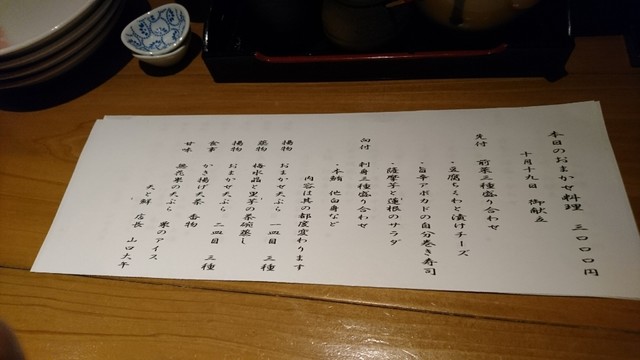 本日のおまかせ料理 三〇〇〇円
十月十九日 御献立
先付 前菜三種盛り合わせ
・豆腐ちくわと漬けチーズ
・旨辛アボカドの自分巻き寿司
・薩摩芋と蓮根のサラダ
向付 刺身三種盛り合わせ
・本鮪 他白身など
内容は其の都度変わります
揚物 おまかせ天ぷら 一皿目 三種
蒸物 梅水晶と里芋の茶碗蒸し
揚物 おまかせ天ぷら 二皿目 三種
食事 かき揚げ天茶 香物
甘味 無花果の天ぷら 米のアイス
天と鮮 店長 山口大午